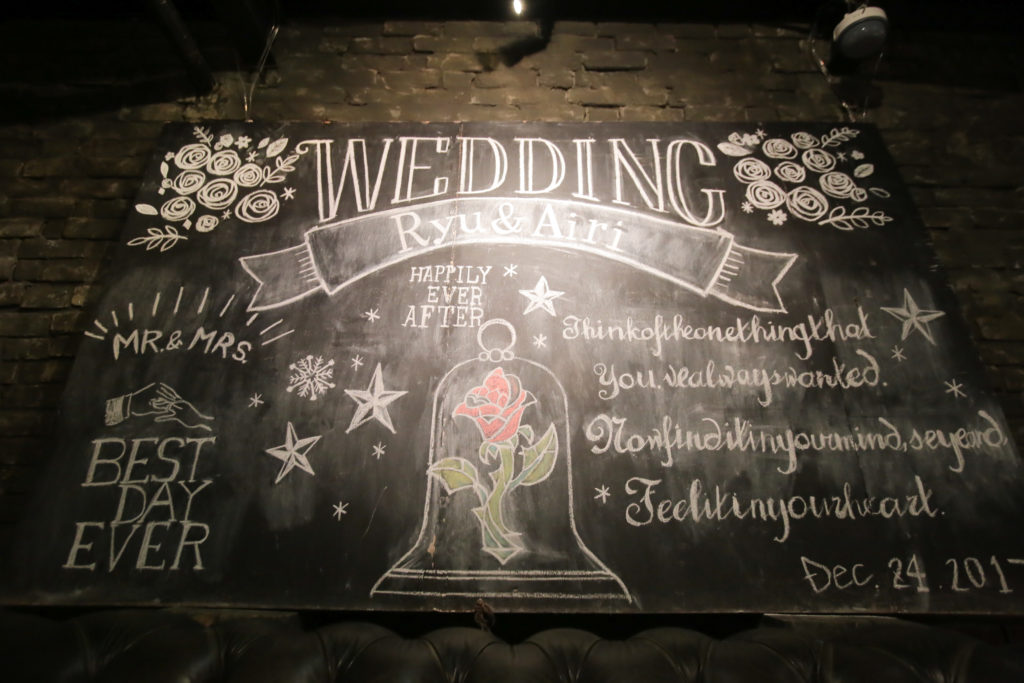 WEDDING
Ryu & Airi
HAPPILY
EVER
AFTER
MR. & MRS.
BEST
DAY
EVER
Thinkoftheonethingthat
You,vealwayswanted.
Nowfinditinyourmind,seyeard
Feelitinyourheart.
Dec. 24. 2017